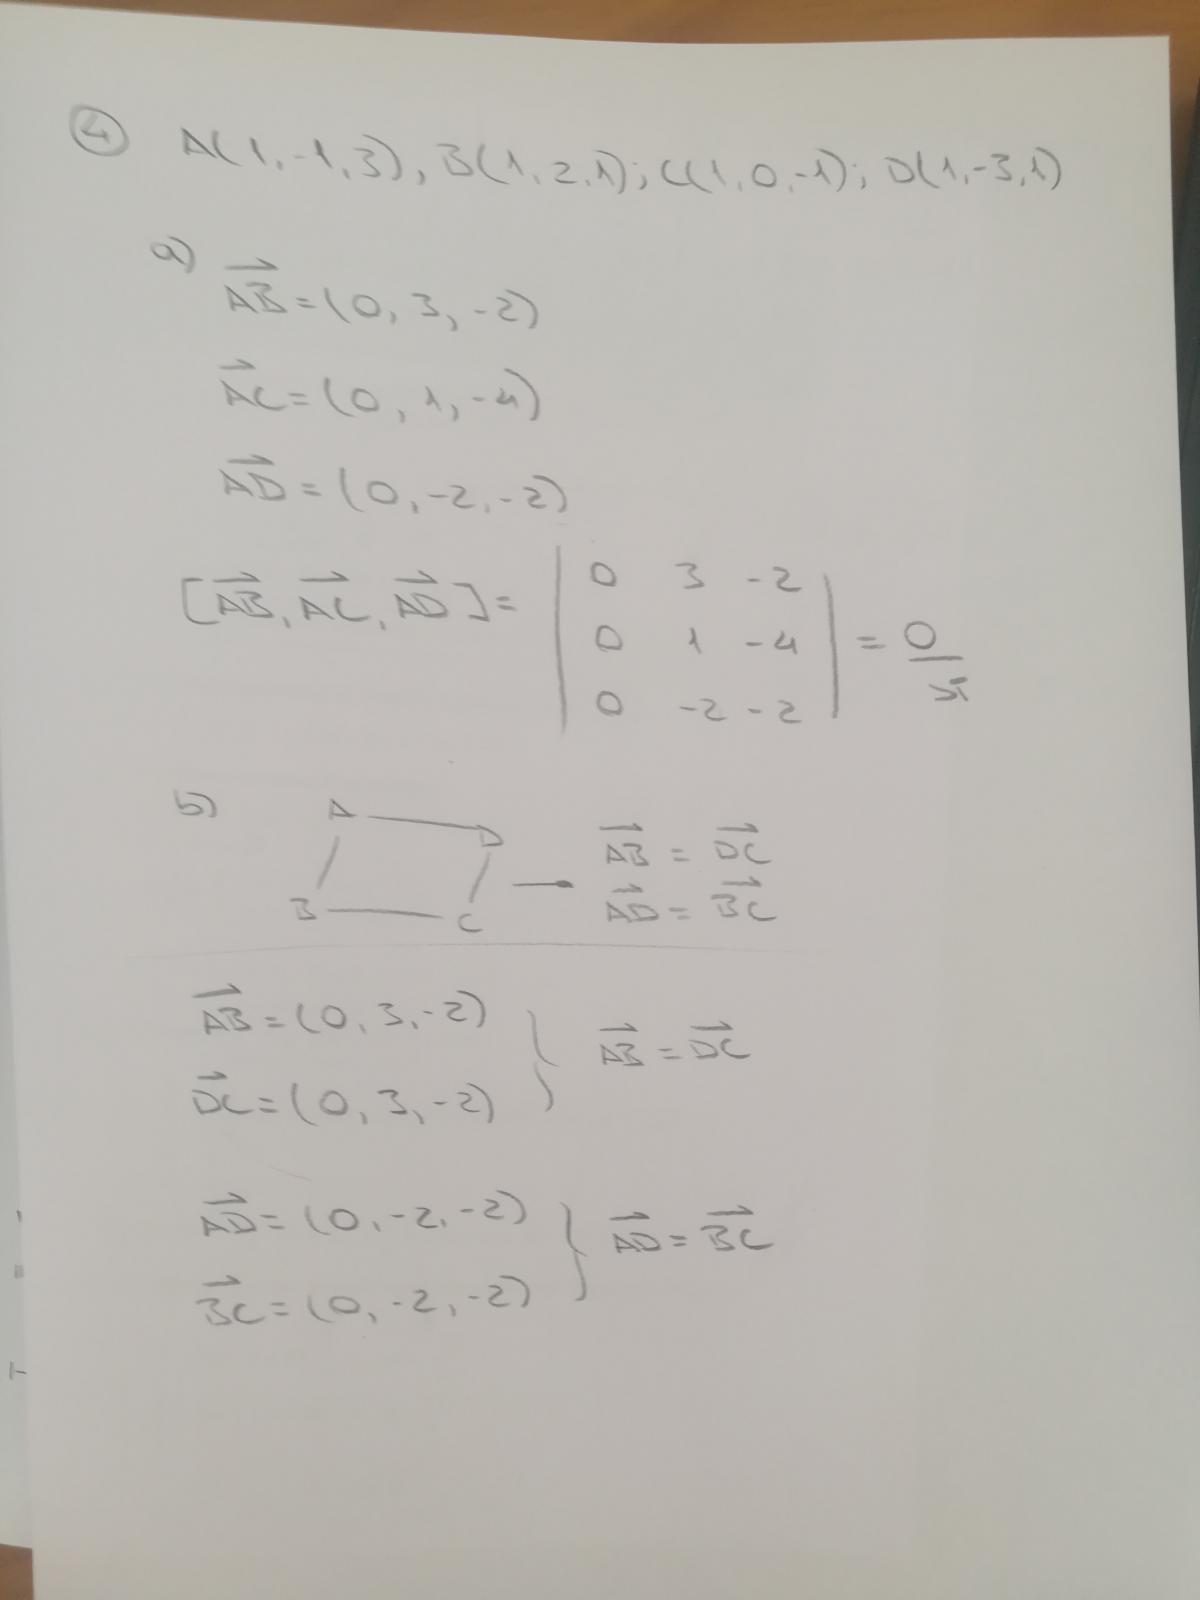 ④ A(1,-1,3), B(1,2,1); C(1,0,-1); D(1,-3,1)
a)
AB⃗ = (0, 3, -2)
AC⃗ = (0, 1, -4)
AD⃗ = (0, -2, -2)
[AB⃗, AC⃗, AD⃗] = | 0 3 -2 |
| 0 1 -4 | = 0
| 0 -2 -2 |
sí
b) A D
AB⃗ = DC⃗
AD⃗ = BC⃗
B C
AB⃗ = (0, 3, -2)
DC⃗ = (0, 3, -2) } AB⃗ = DC⃗
AD⃗ = (0, -2, -2)
BC⃗ = (0, -2, -2) } AD⃗ = BC⃗